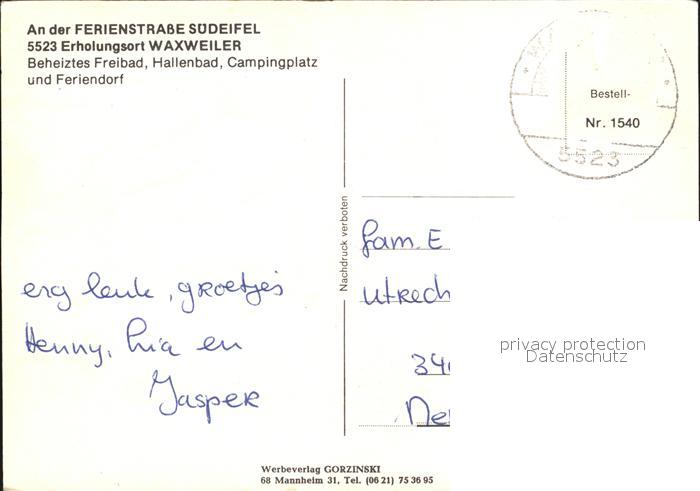 An der FERIENSTRAßE SÜDEIFEL
5523 Erholungsort WAXWEILER
Beheiztes Freibad, Hallenbad, Campingplatz
und Feriendorf
Bestell-
Nr. 1540
5523
Nachdruck verboten
erg leuk, groetjes
Henny, Ria en
Jasper
fam. E
utrech
34
Ne
privacy protection
Datenschutz
Werbeverlag GORZINSKI
68 Mannheim 31, Tel. (06 21) 75 36 95